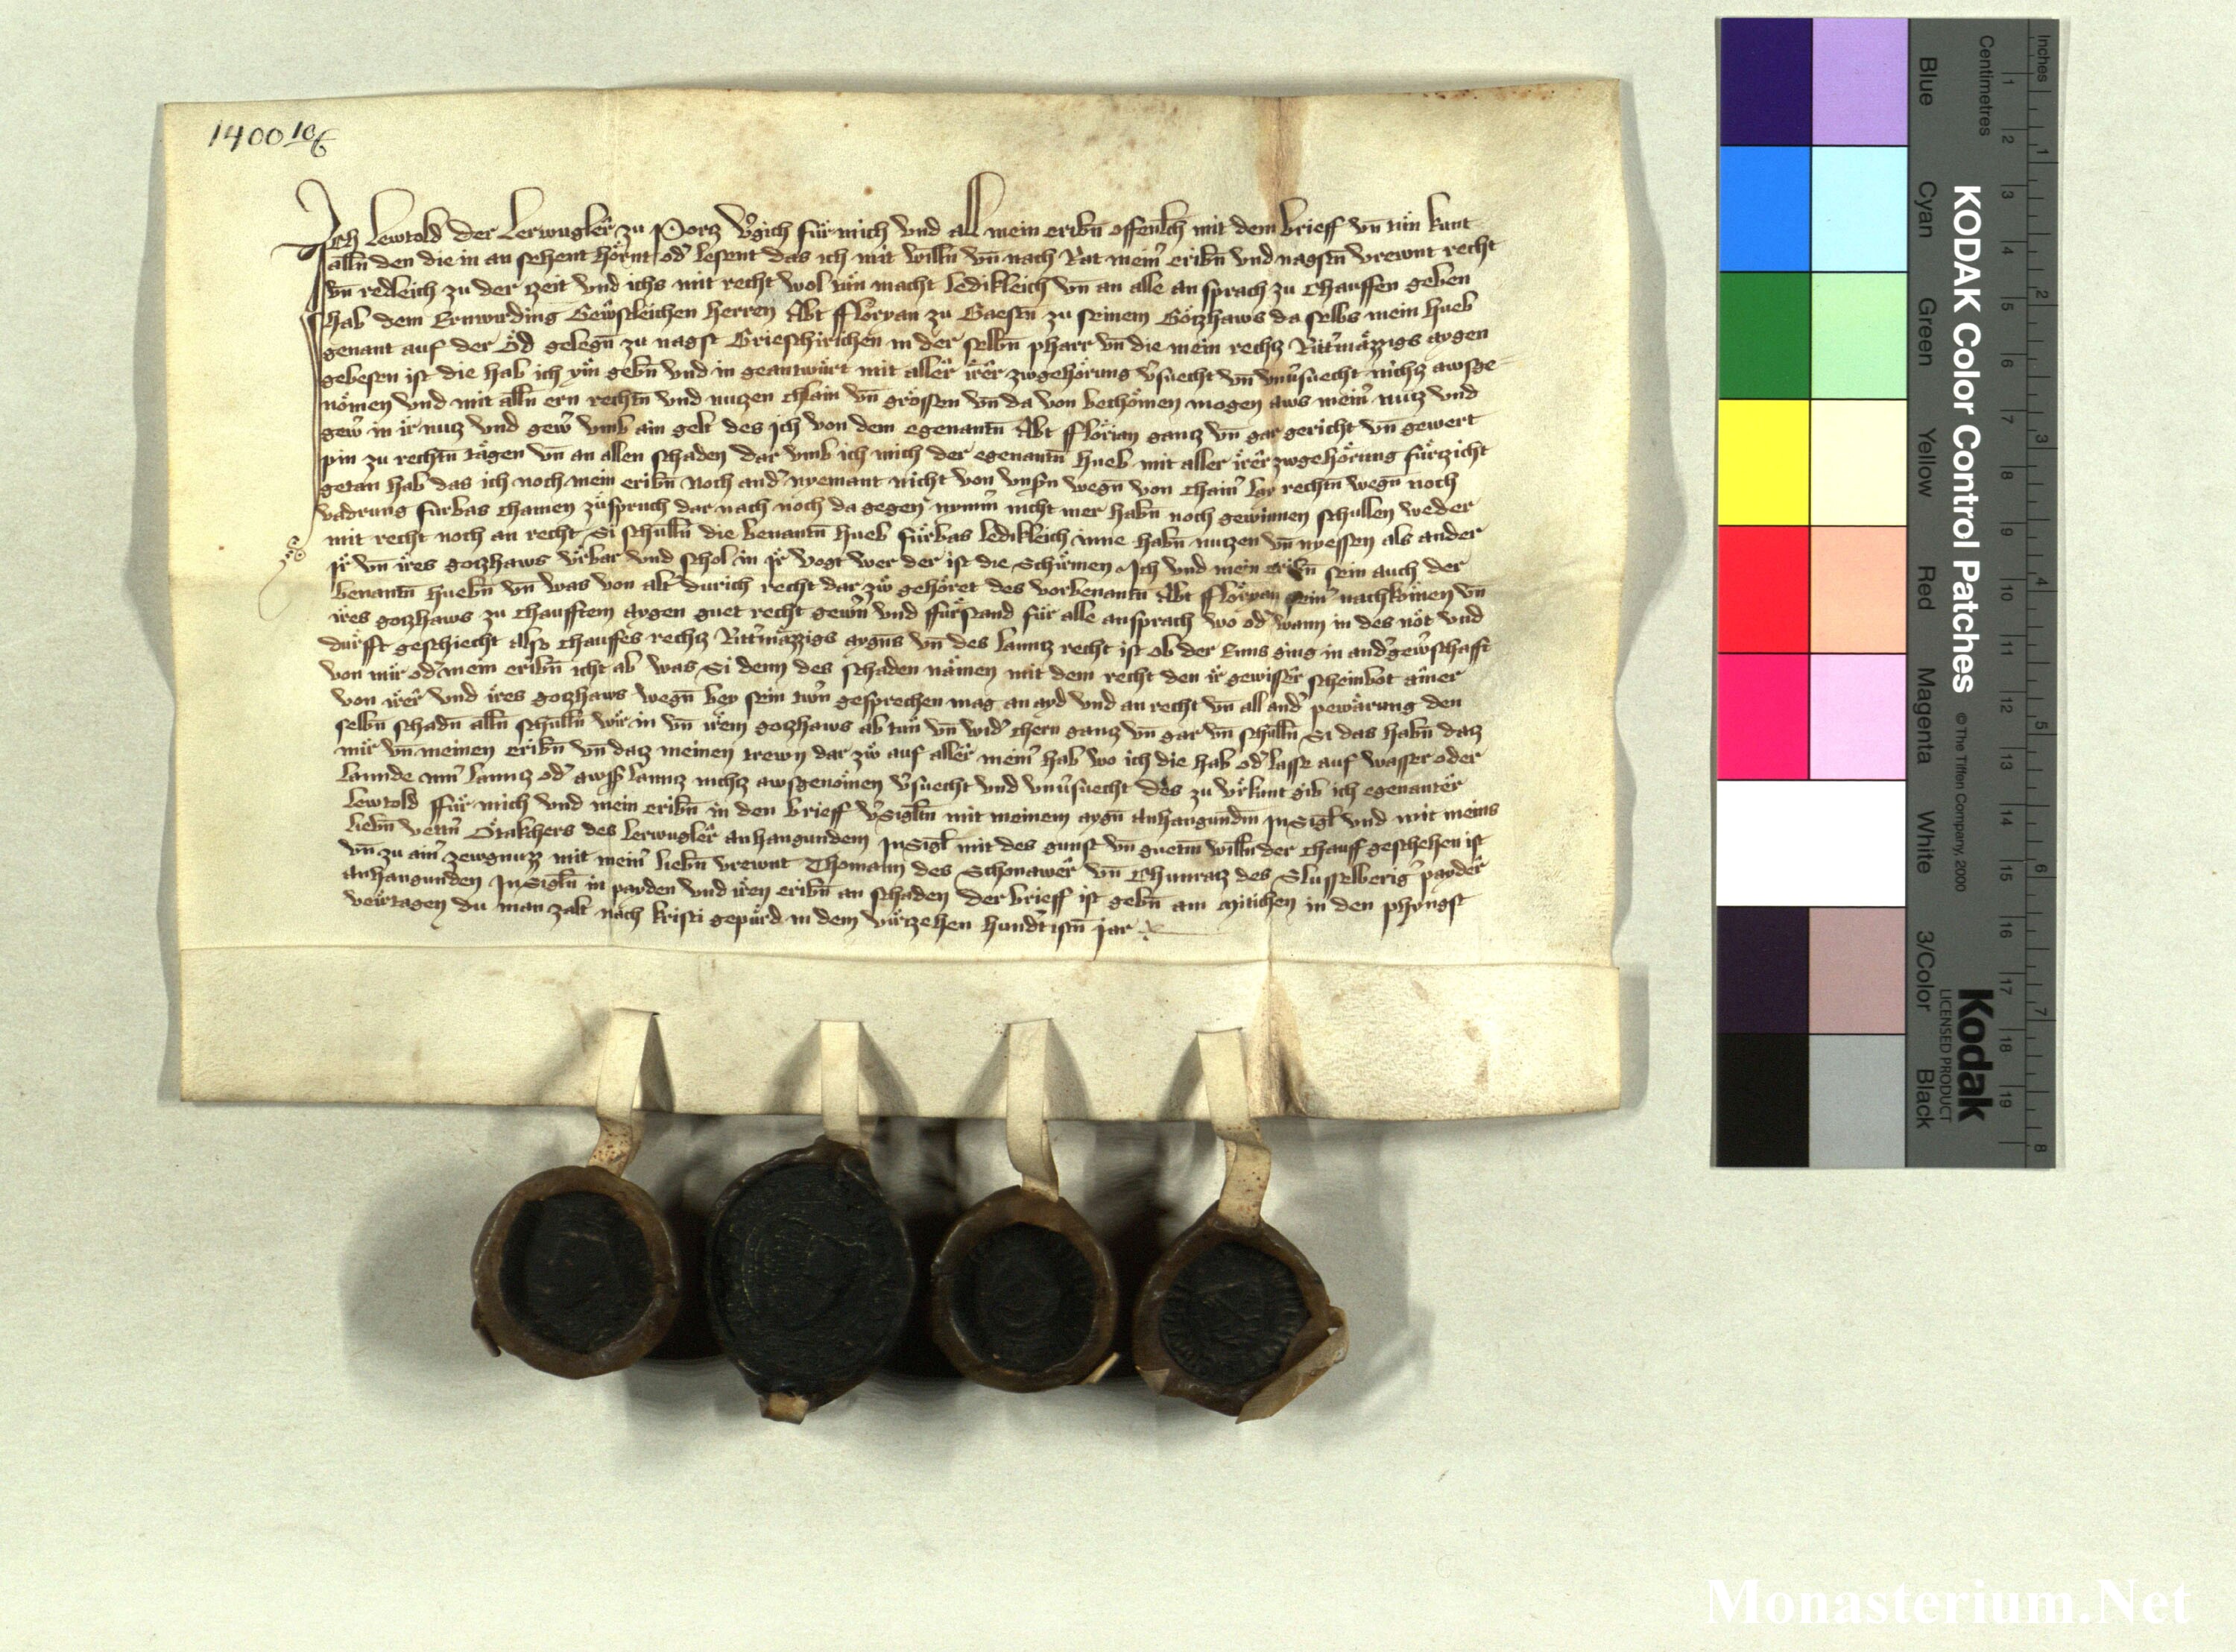 1400 10/6
Ich Lewtold der Lerwuglër zu Porcz v̉gich für mich vnd all mein eribn̄ offenl̄ch mit dem brieff vn̄ tün kunt
alln̄ den die in an sehent hörnt od̉ lesent das ich mit willn̄ vn̄ nach Rat mein̉ eribn̄ vnd nagstn̄ vrewnt recht
vn̄ redleich zu der tzeit vnd ichs mit recht wol tün macht ledikleich vn̄ an alle ansprach zu chauffen geben
hab dem Ernwirding Geistleichen herren Abt fflöryan zu Gaestn̄ zu seinem Götzhaws da selbs mein hueb
genant auf der Öd gelegn̄ zu nagst Grieschirichen in der selbn̄ pharr vn̄ die mein rechtz Ritt̉mäzzigs aygen
gebesen ist die hab ich yin gebn̄ vnd in geantwürt mit allër irër zwgehörung v̉suecht vn̄ vnv̉suecht nichtz awsge-
nömen vnd mit alln̄ ern rechtn̄ vnd nutzen chlain vn̄ grössen vn̄ da von bechömen mogen aws mein̉ nutz vnd
gew̉ in ir nutz vnd gew̉ vmb ain gelt des ich von dem egenantn̄ Abt fflörian gantz vn̄ gar gericht vn̄ gewert
pin zu rechtn̄ tägen vn̄ an allen schaden dar vmb ich mich der egenantn̄ hueb mit aller irër zwgehörung fürtzicht
getan hab das ich noch mein eribn̄ noch and̉ nyemant nicht von vnsn̄ wegn̄ von chain̉ lay rechtn̄ wegn̄ noch
vadrung fürbas chainen züspruch dar nach noch da gegen nym̄ nicht mer habn̄ noch gewinnen schullen weder
mit recht noch an recht Si schulln̄ die benantn̄ hueb fürbas ledikleich inne habn̄ nutzen vn̄ nyessen als ander
ir vn̄ ires gotzhaws vrbar vnd schol in ir vogt wer der ist die Schirmen Ich vnd mein eribn̄ sein auch der
benantn̄ huebn̄ vn̄ was von alt̉ durich recht dar zw gehöret des vorbenantn̄ Abt fflöryan sein̉ nachkömen vn̄
ires gotzhaws zu chaufftem aygen guet recht gewn̄ vnd ffürstand für alle ansprach wo od̉ wann in des nöt vnd
dürfft geschiecht also chauffes rechtz Ritt̉mäzzigs aygns vn̄ des lanntz recht ist ob der Enns ging in and̉ gew̉schafft
von mir od̉ mein eribn̄ icht ab was Si denn des schaden nämen mit dem recht den ir gewissër scheinbot ainer
von irër vnd ires gotzhaws wegn̄ bey sein tr̄wn gesprechen mag an ayd vnd an recht vn̄ all and̉ pewärung den
selbn̄ schadn̄ alln̄ schulln̄ wir in vn̄ irem gotzhaws ab tün vn̄ wid̉ chern gantz vn̄ gar vn̄ schulln̄ Si das habn̄ datz
mir vn̄ meinen eribn̄ vn̄ datz meinen trewn dar zw auf allër mein̉ hab wo ich die hab od̉ lasse auf wasser oder
lannde inn̉ lanntz od̉ awss lanntz nichtz awsgenömen v̉suecht vnd vnv̉suecht des zu vrkunt gib ich egenantër
Lewtold ffür mich vnd mein eribn̄ in den brieff v̉Sigltn̄ mit meinem aygn̄ Anhangundm̄ InSigl̄ vnd mit meins
liebn̄ vettn̉ Ötakchers des Lerwuglër anhangundem InSigl̄ mit des gunst vn̄ guetm̄ willn̄ der chauff geschehen ist
vn̄ zu ain̉ zewgnuzz mit mein̉ liebn̄ vrewnt Thomann des Schonawër vn̄ Chunratz des Slusselberig̉ payder
anhangunden InSigln̄ in payden vnd iren eribn̄ an schaden der brieff ist gebn̄ am Mitichen in den phyngst
veirtagen du man zalt nach kristi gepürd in dem virtzehen hund̉tistn̄ jar
KODAK Color Control Patches © The Tiffen Company, 2000
Kodak
LICENSED PRODUCT
Inches 1 2 3 4 5 6 7 8
Centimetres 1 2 3 4 5 6 7 8 9 10 11 12 13 14 15 16 17 18 19
Blue Cyan Green Yellow Red Magenta White 3/Color Black
Monasterium.Net